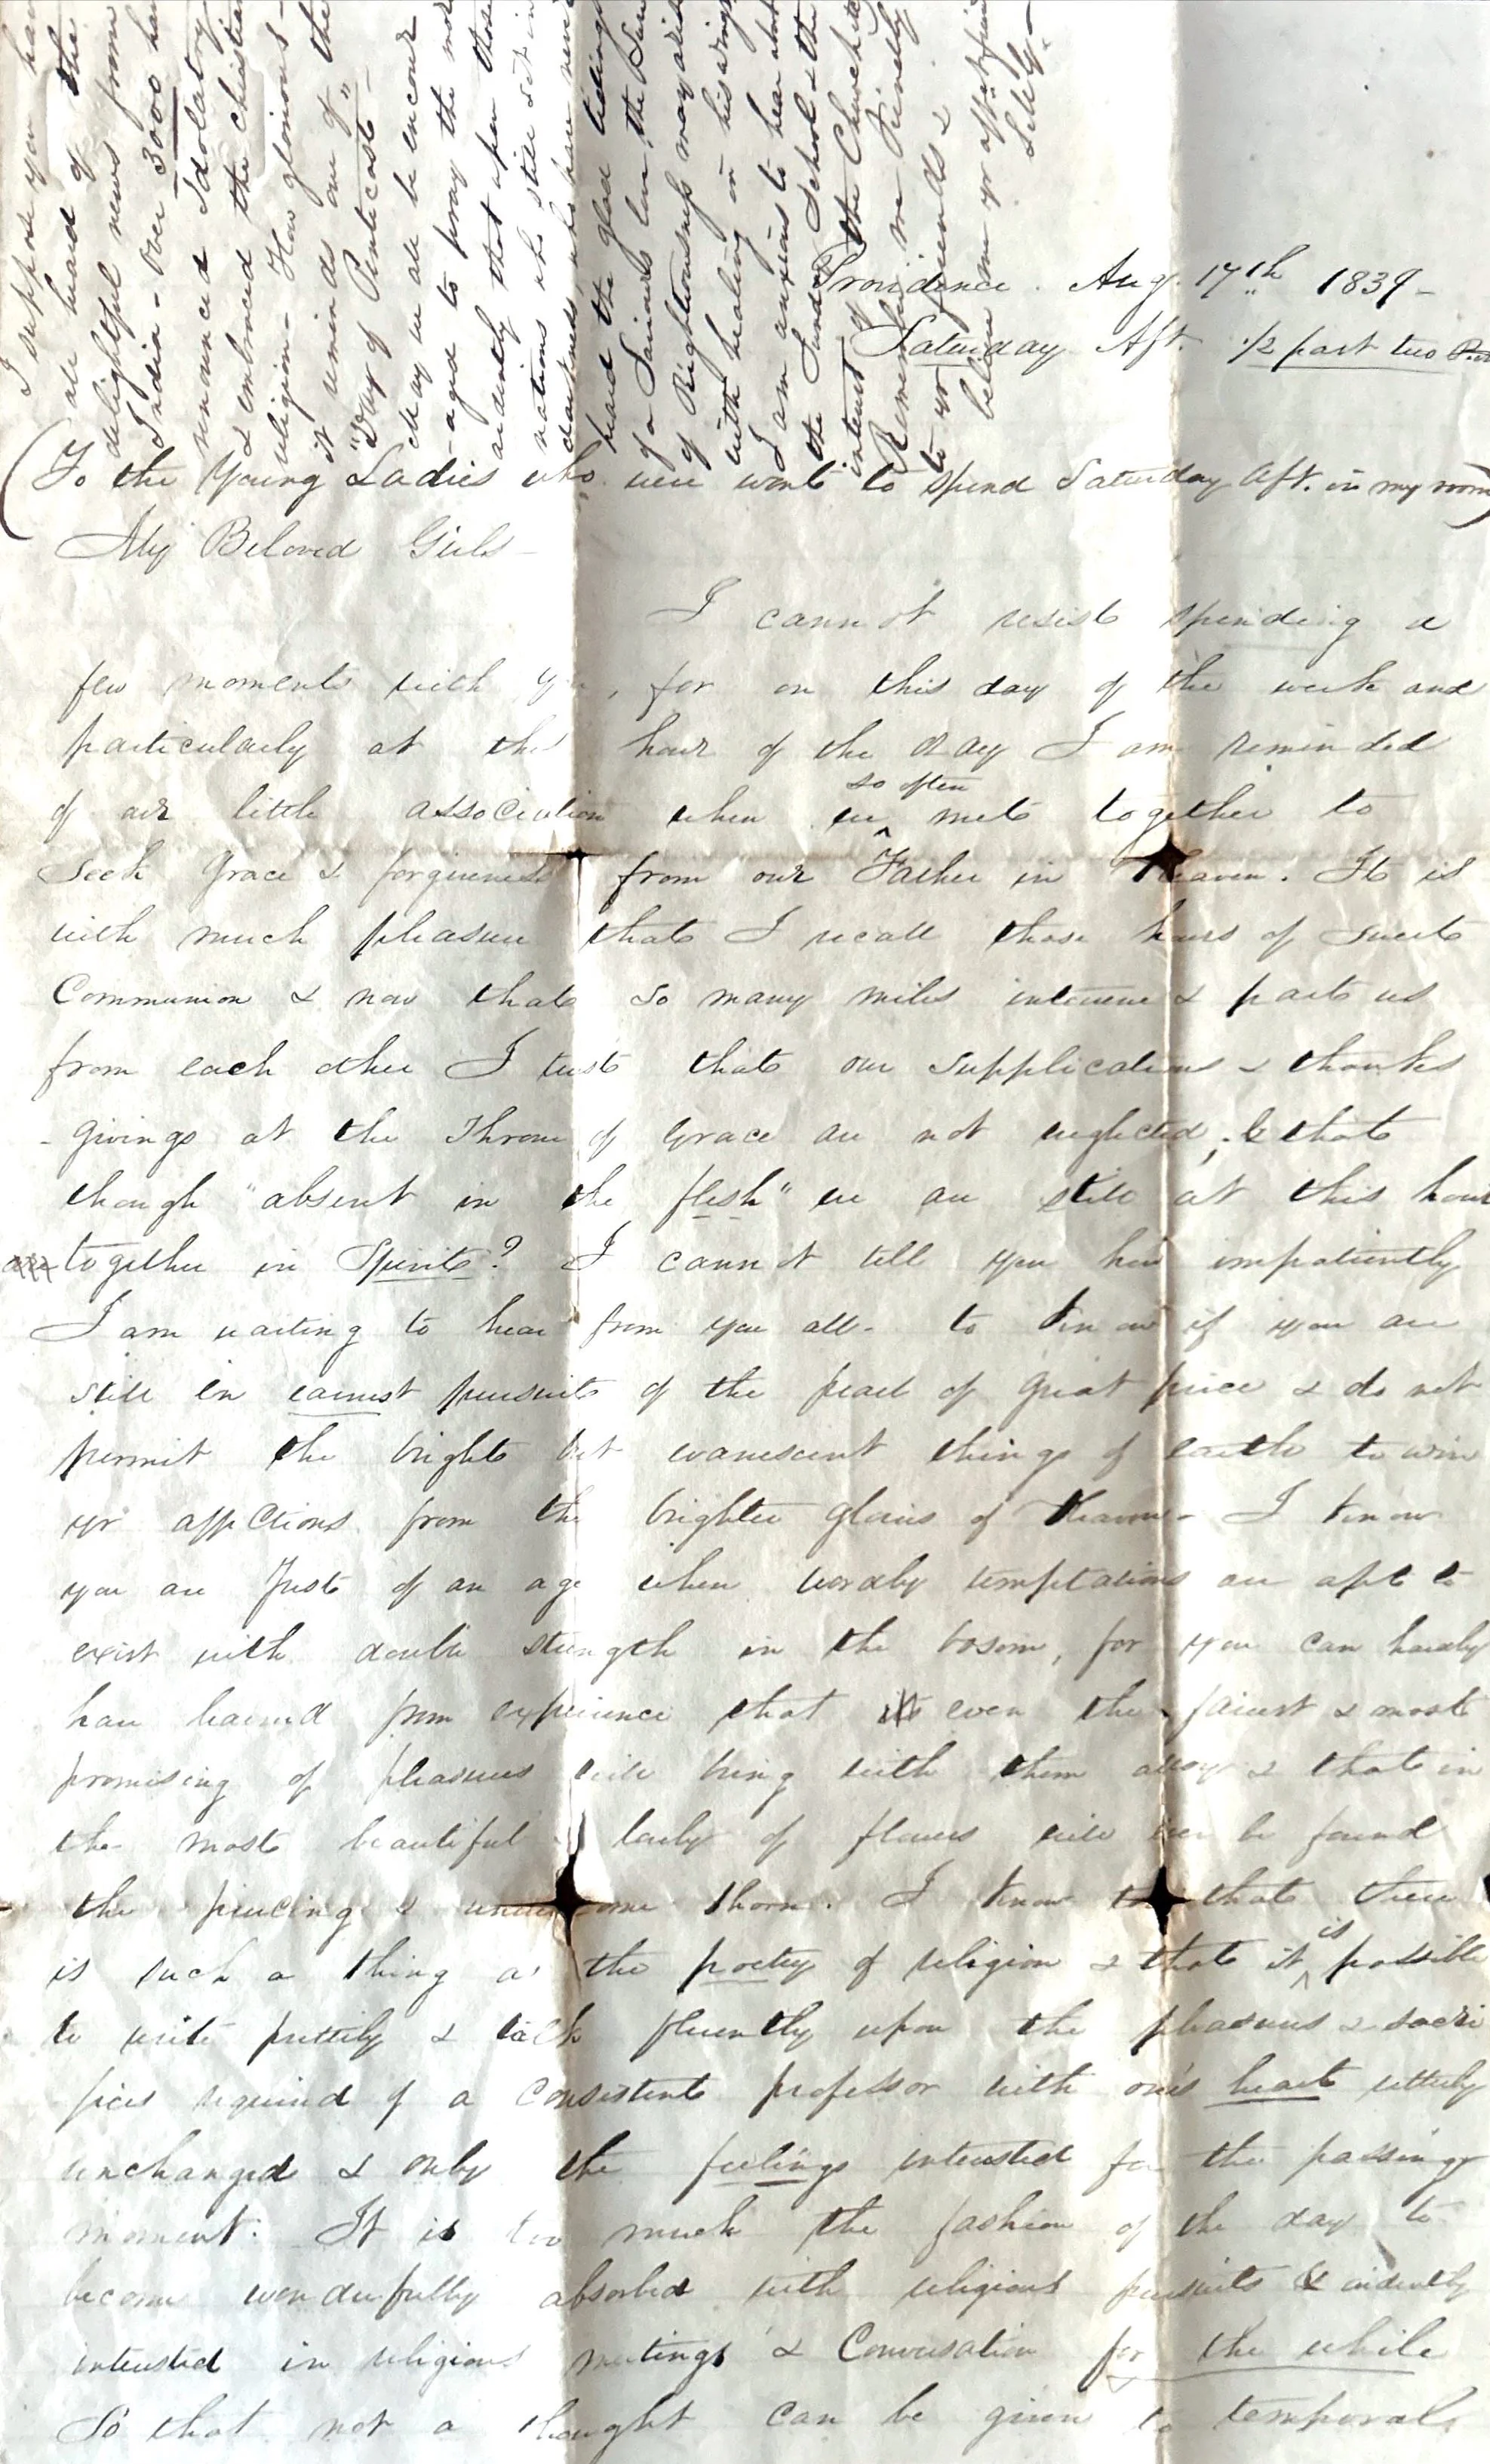 Providence. Aug. 17th 1839-
Saturday Aft. 1/2 past two P.M
(To the Young Ladies who were wont to spend Saturday Aft. in my room)
My Beloved Girls-
I cannot resist spending a
few moments with you, for on this day of the week and
particularly at this hour of the day I am reminded
of our little association when we so often met together to
Seek Grace & forgiveness from our Father in Heaven. It is
with much pleasure that I recall those hours of Sweet
Communion & now that so many miles intervene & parts us
from each other I trust that our supplications & thanks
-givings at the Throne of Grace are not neglected, & that
though "absent in the flesh" we are still at this hour
together in Spirit? I cannot tell you how impatiently
I am waiting to hear from you all- to know if you are
still in earnest pursuit of the pearl of great price & do not
permit the bright but evanescent things of earth to win
yr affections from the brighter glories of Heaven- I know
you are Just of an age when wordly temptations are apt to
exist with double strength in the bosom, for you can hardly
have learned from experience that even the fairest & most
promising of pleasures will bring with them alloy & that in
the most beautiful lovely of flowers will ever be found
the piercing & thorn. I know too that there
is such a thing as the poetry of religion & that it is possible
to write prettily & talk fluently upon the pleasures & sacri
fices required of a consistent professor with one's heart utterly
unchanged & only the feelings interested for the passing
moment. It is too much the fashion of the day to
become wonderfully absorbed with religious pursuits & evidently
interested in religious meetings & Conversation for the while
So that not a thought can be given to temporal
I suppose you have
all heard of the
delightful news from
India- Over 3000 have
renounced Idolatory
& embraced the christian
religion- How glorious-
it reminds one of the
"Day of Penticost"-
May we all be encour
-aged to pray the more
ardently that upon those
nations who still sit in
darkness, who have never
heard the glad tidings
of a Saviours love, the Sun
of Righteousness may arise
with healing in his wings
I am anxious to hear about
the Sunday School & the
interest of the Church &c
Remember me kindly
to yr friends &
believe me yr aff. friend